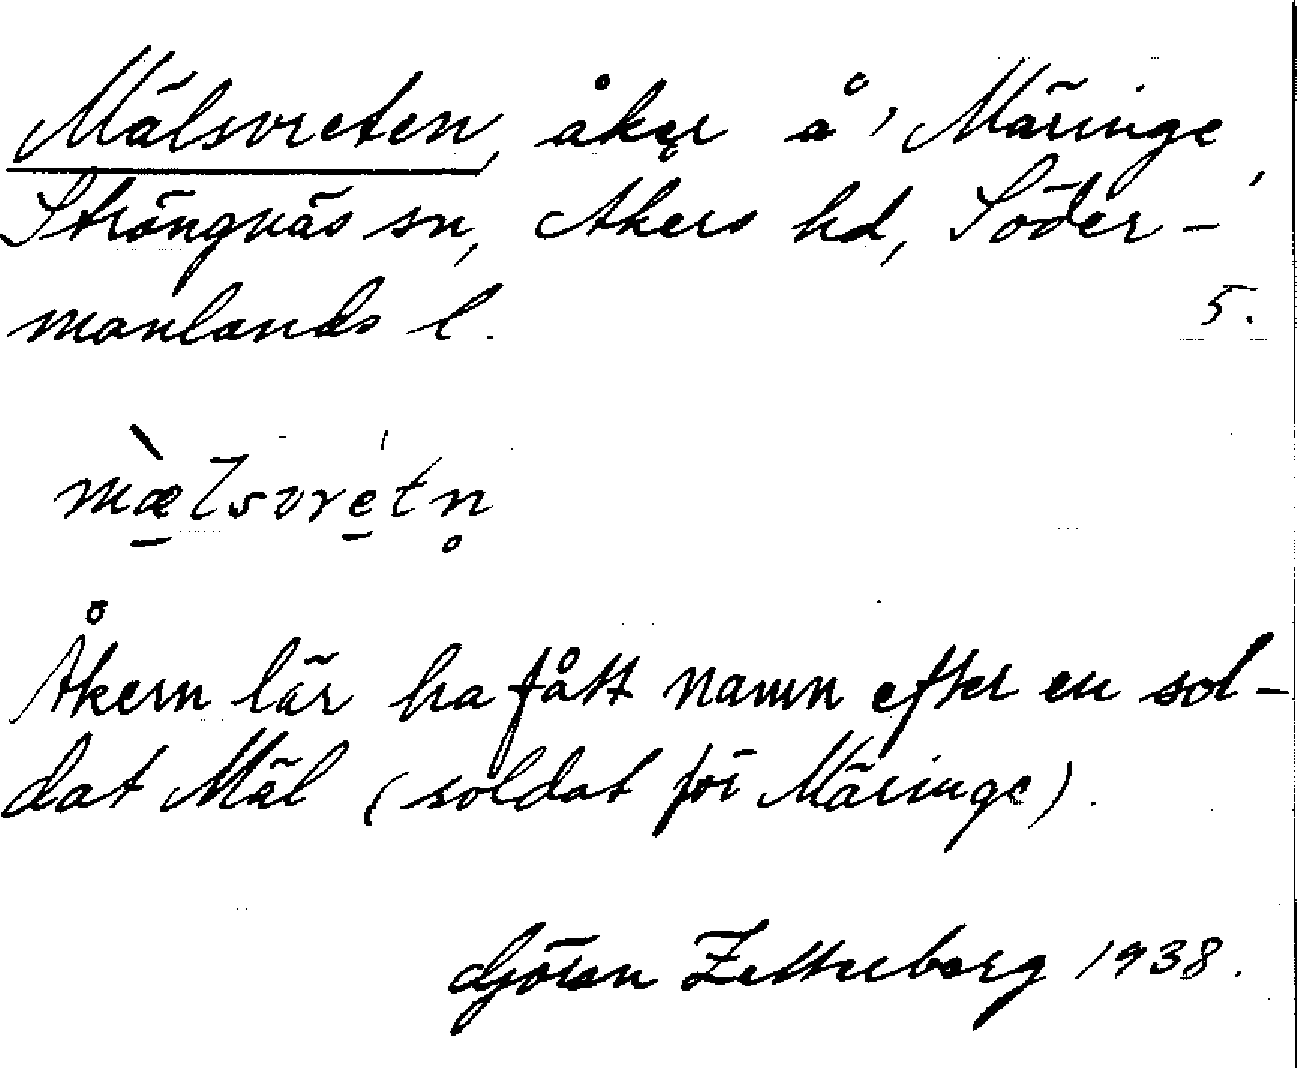 Mälsvreten, åker å Märinge,
Strängnäs sn, Åkers hd, Söder-
manlands l. 5.
mæ̀lsvretn̥
Åkern lär ha fått namn efter en sol-
dat Mäl (soldat för Märinge).
Göran Zetterberg 1938.